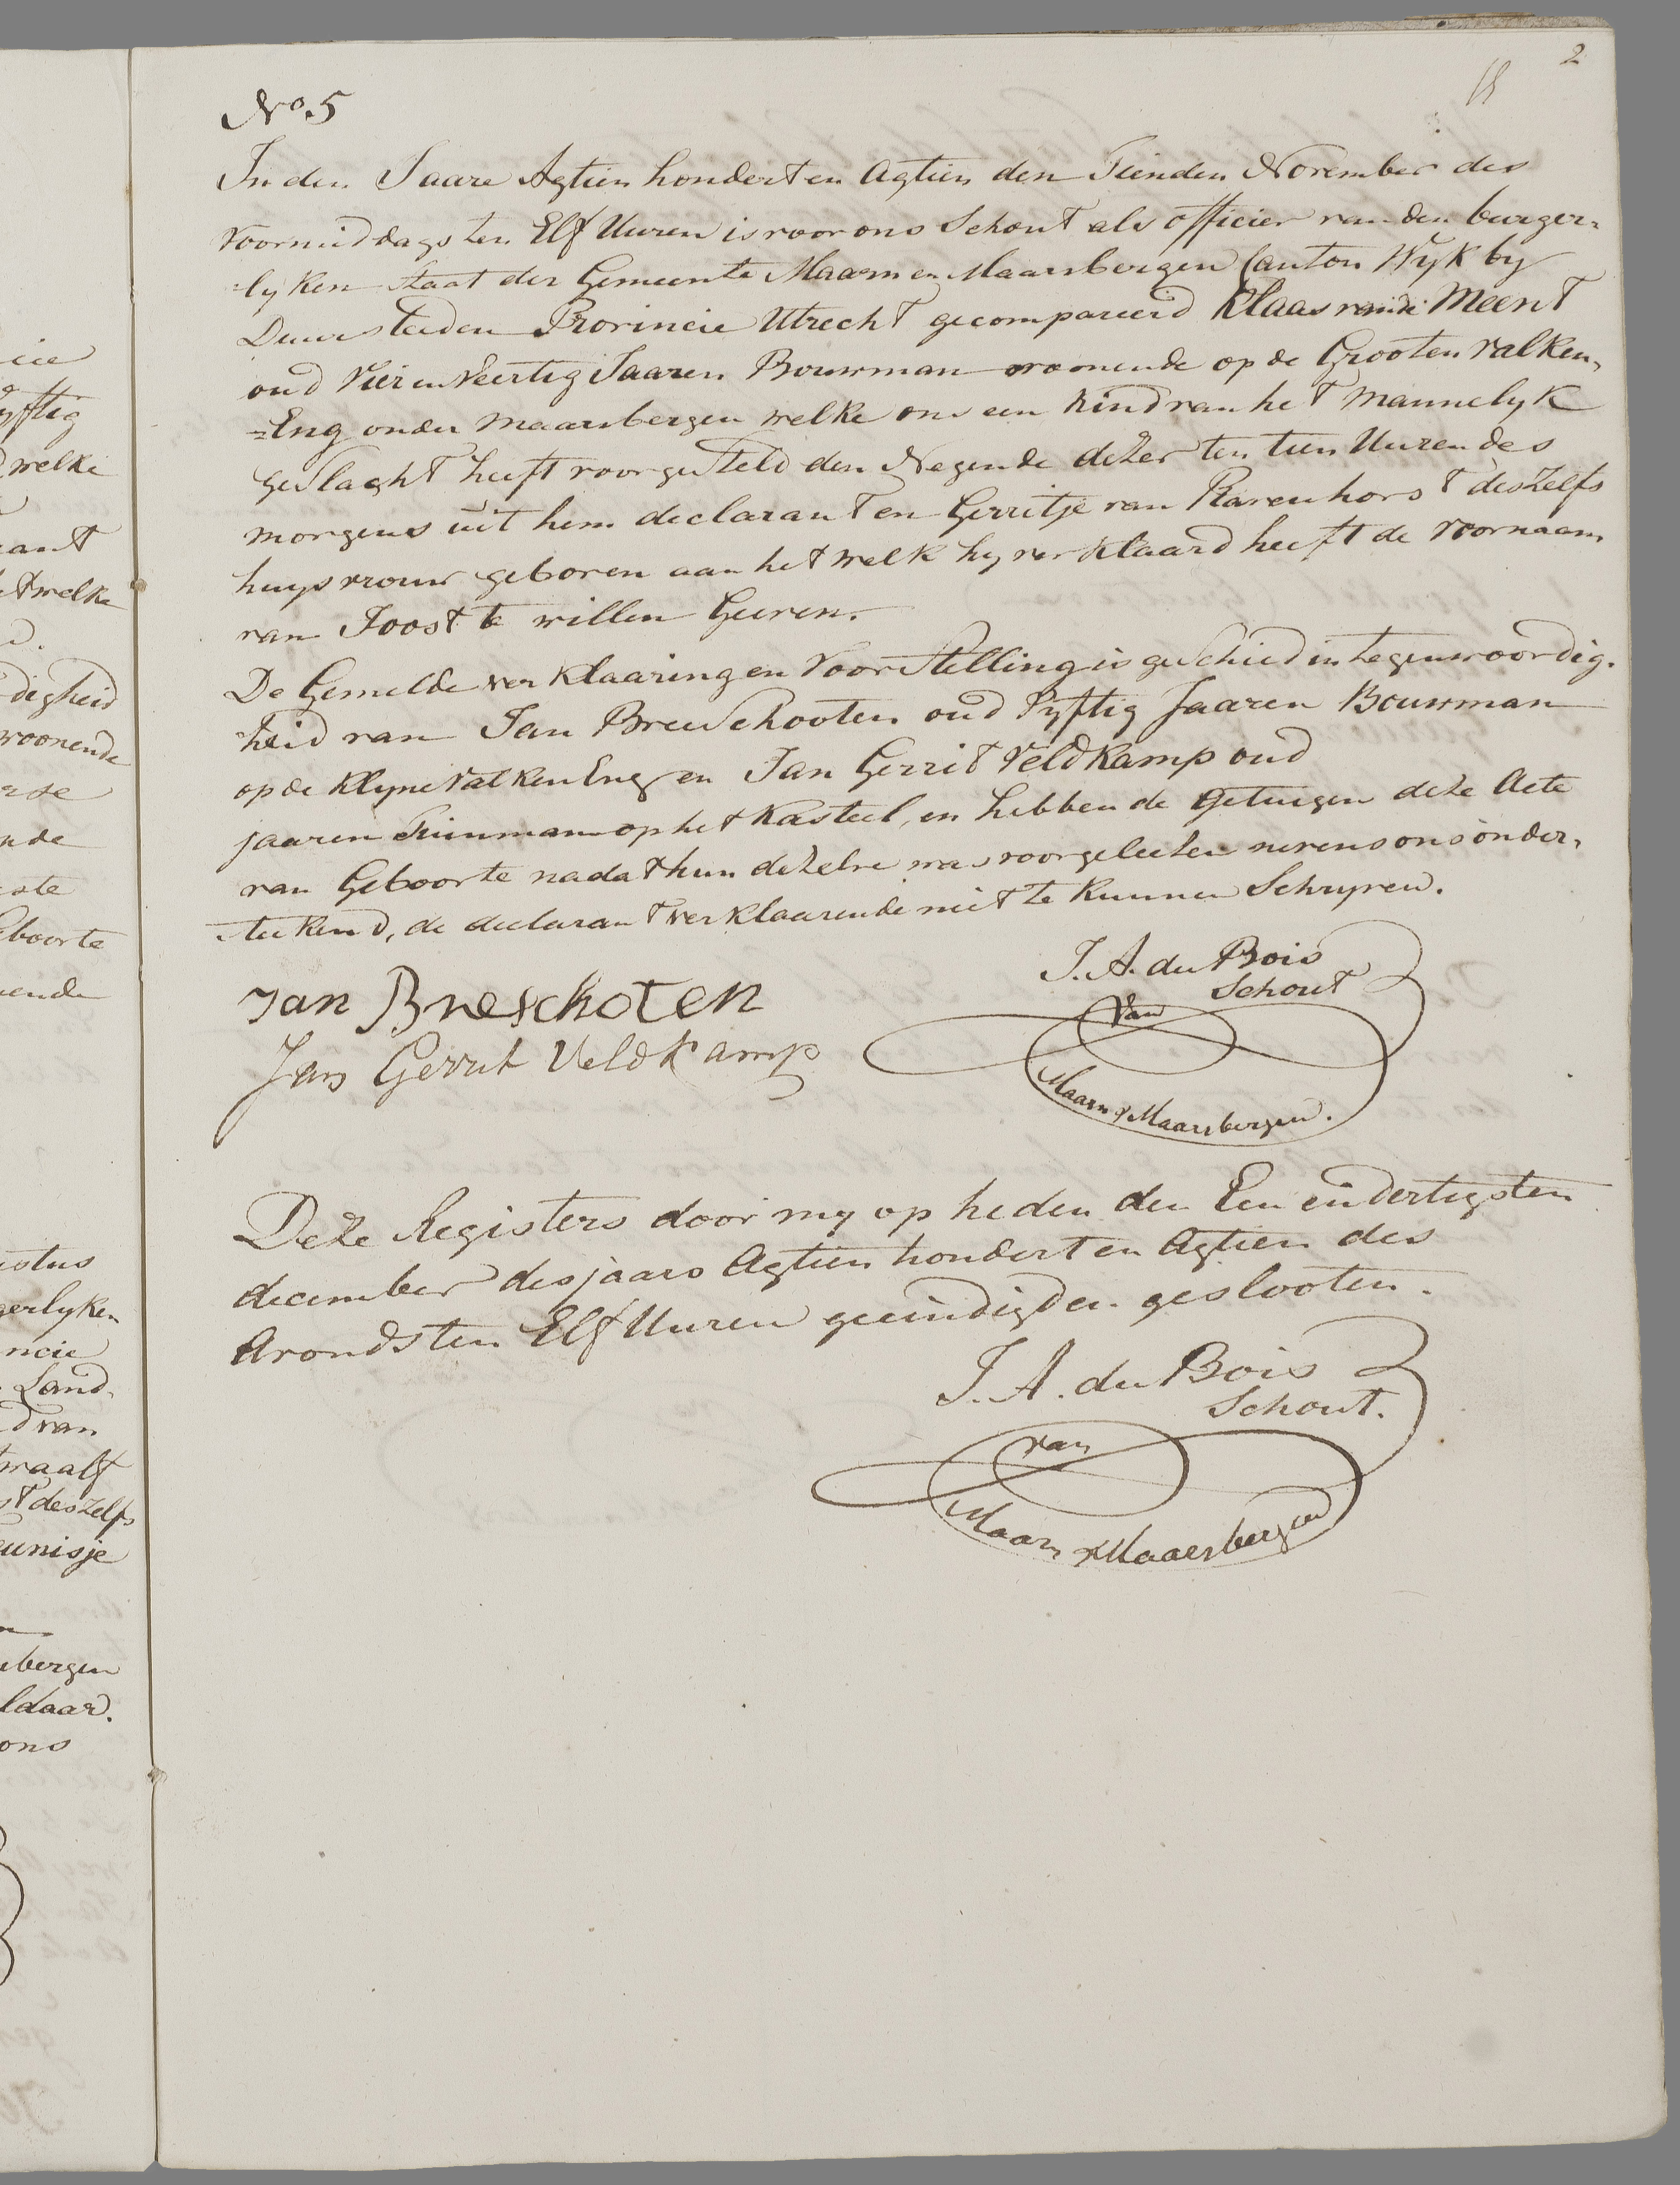 2
No. 5
In den Jaare Agtien hondert en Agtien den Tienden November des
voormiddags ten Elf Uuren is voor ons Schout als officier van den burger=
=lyken Staat der Gemeente Maarn en Maarsbergen Canton Wyk by
Duursteeden Provincie Utrecht gecompareerd Klaas van de Meent
oud Vier en Veertig Jaaren Bouwman woonende op de Grooten Valken=
=Eng onder Maarsbergen welke ons een Kind van het Mannelyk
geslaght heeft voorgesteld den Negende dezer ten tien Uuren des
morgens uit hem declarant en Gerritje van Ravenhorst deszelfs
huysvrouw geboren aan het welk hy verklaard heeft de voornaam
van Joost te willen Geeven.
De Gemelde verklaaring en Voorstelling is geschied in tegenwoordig.
heid van Jan Breeschooten oud Vyftig Jaaren Bouwman
op de Klyne Valken Eng en Jan Gerrit Veldkamp oud
jaaren Tuinman op het Kasteel, en hebben de Getuigen deze Acte
van Geboorte nadat hun dezelve was voorgeleezen nevens ons onder=
teekend, de declarant verklaarende niet te kunnen Schryven.
J. A. du Bois
Schout
Van
Maarn & Maarsbergen.
Jan Breschoten
Jan Gerrit Veldkamp
Deze Registers door my op heden den Een en dertigsten
december des jaars Agtien hondert en Agtien des
Avonds ten Elf Uuren geeindigd en geslooten.
J. A. du Bois
Schout.
van
Maarn & Maarsbergen
cie
yftig
welke
ant
etwelke
digheid
woonende
nde
Geboorte
ustus
gerlyken
incie
Land=
d van
twaalf
st deszelfs
eunisje
sbergen
ldaar.
ons